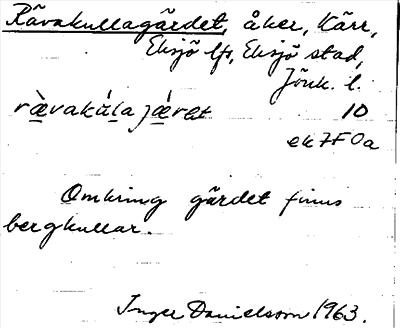 Rävakullagärdet, åker, Kärr,
Eksjö lfs, Eksjö stad,
Jönk. l.
ræ̀vakúlajǽret 10
ek7F0a
Omkring gärdet finns
bergkullar.
Inger Danielsson 1963.